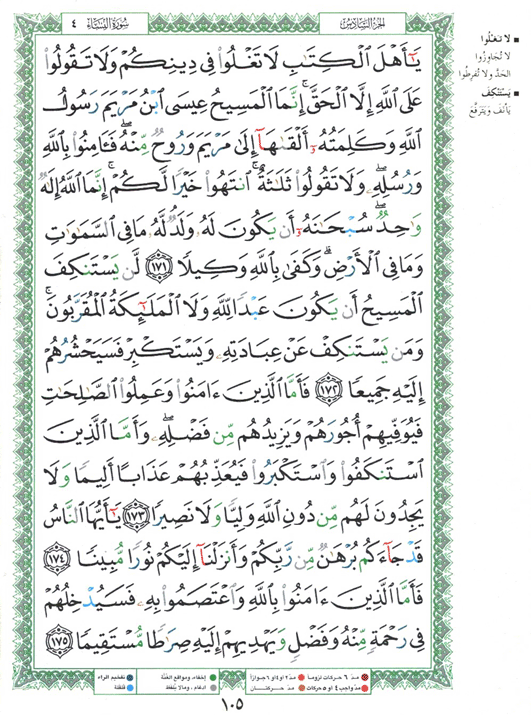 الجزء السادس
سورة النساء ٤
يَٰٓأَهْلَ ٱلْكِتَٰبِ لَا تَغْلُوا۟ فِى دِينِكُمْ وَلَا تَقُولُوا۟
عَلَى ٱللَّهِ إِلَّا ٱلْحَقَّ ۚ إِنَّمَا ٱلْمَسِيحُ عِيسَى ٱبْنُ مَرْيَمَ رَسُولُ
ٱللَّهِ وَكَلِمَتُهُۥٓ أَلْقَىٰهَآ إِلَىٰ مَرْيَمَ وَرُوحٌ مِّنْهُ ۖ فَـَٔامِنُوا۟ بِٱللَّهِ
وَرُسُلِهِۦ ۖ وَلَا تَقُولُوا۟ ثَلَٰثَةٌ ۚ ٱنتَهُوا۟ خَيْرًا لَّكُمْ ۚ إِنَّمَا ٱللَّهُ إِلَٰهٌ
وَٰحِدٌ ۖ سُبْحَٰنَهُۥٓ أَن يَكُونَ لَهُۥ وَلَدٌ ۘ لَّهُۥ مَا فِى ٱلسَّمَٰوَٰتِ
وَمَا فِى ٱلْأَرْضِ ۗ وَكَفَىٰ بِٱللَّهِ وَكِيلًا ١٧١ لَّن يَسْتَنكِفَ
ٱلْمَسِيحُ أَن يَكُونَ عَبْدًا لِّلَّهِ وَلَا ٱلْمَلَٰٓئِكَةُ ٱلْمُقَرَّبُونَ ۚ
وَمَن يَسْتَنكِفْ عَنْ عِبَادَتِهِۦ وَيَسْتَكْبِرْ فَسَيَحْشُرُهُمْ
إِلَيْهِ جَمِيعًا ١٧٢ فَأَمَّا ٱلَّذِينَ ءَامَنُوا۟ وَعَمِلُوا۟ ٱلصَّٰلِحَٰتِ
فَيُوَفِّيهِمْ أُجُورَهُمْ وَيَزِيدُهُم مِّن فَضْلِهِۦ ۖ وَأَمَّا ٱلَّذِينَ
ٱسْتَنكَفُوا۟ وَٱسْتَكْبَرُوا۟ فَيُعَذِّبُهُمْ عَذَابًا أَلِيمًا وَلَا
يَجِدُونَ لَهُم مِّن دُونِ ٱللَّهِ وَلِيًّا وَلَا نَصِيرًا ١٧٣ يَٰٓأَيُّهَا ٱلنَّاسُ
قَدْ جَآءَكُم بُرْهَٰنٌ مِّن رَّبِّكُمْ وَأَنزَلْنَآ إِلَيْكُمْ نُورًا مُّبِينًا ١٧٤
فَأَمَّا ٱلَّذِينَ ءَامَنُوا۟ بِٱللَّهِ وَٱعْتَصَمُوا۟ بِهِۦ فَسَيُدْخِلُهُمْ
فِى رَحْمَةٍ مِّنْهُ وَفَضْلٍ وَيَهْدِيهِمْ إِلَيْهِ صِرَٰطًا مُّسْتَقِيمًا ١٧٥
لا تغلوا
لا تُجاوِزوا
الحدَّ ولا تُفرِطوا
يَسْتنكِف
يأنف ويترفّع
مدّ ٦ حركات لزوماً
مدّ ٢ أو ٤ أو ٦ جوازاً
إخفاء، ومواقع الغنّة
تفخيم الراء
مدّ واجب ٤ أو ٥ حركات
مدّ حركتان
إدغام، وما لا يُلفظ
قلقلة
١٠٥